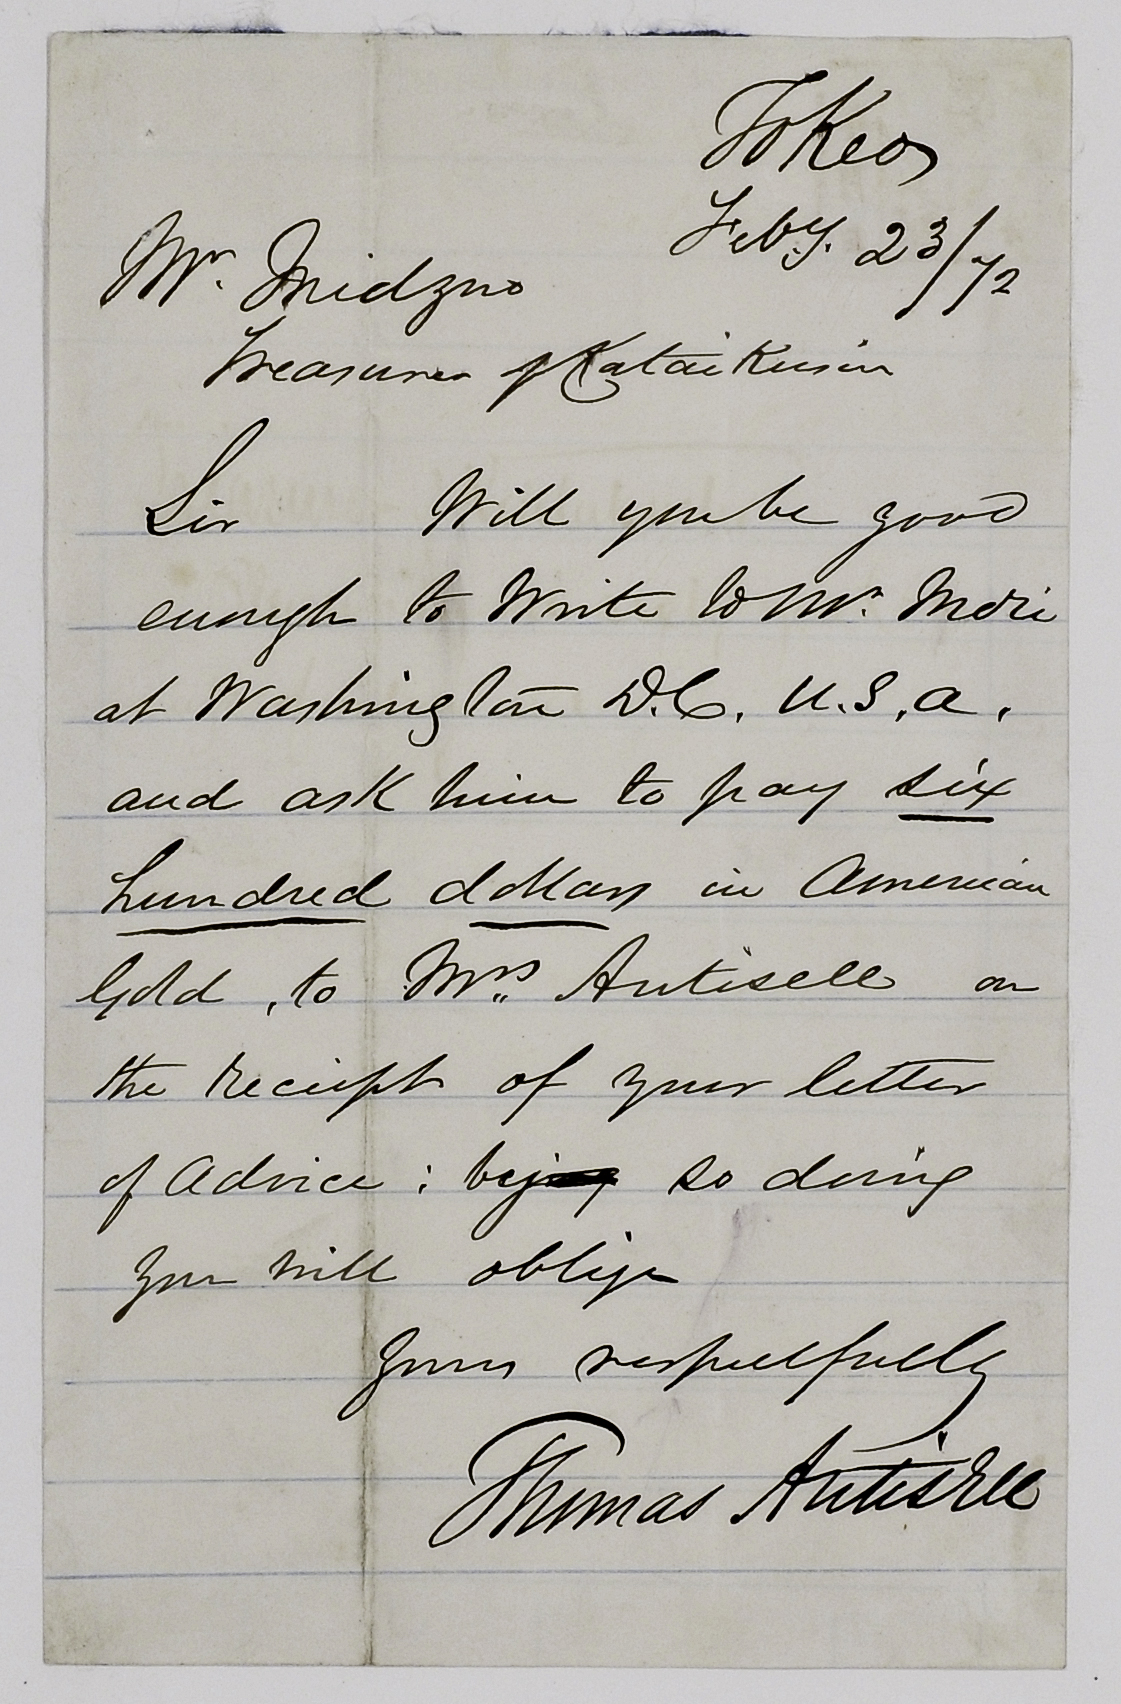 Tokeo
Feby. 23/72
Mr. Midzno
Treasurer of Kataikusin
Sir Will you be good
enough to Write to Mr. Mori
at Washington D.C. U.S.A.
and ask him to pay six
hundred dollars in American
Gold, to Mrs. Antisell on
the receipt of your letter
of Advice : by so doing
you will oblige
Yours respectfully
Thomas Antisell